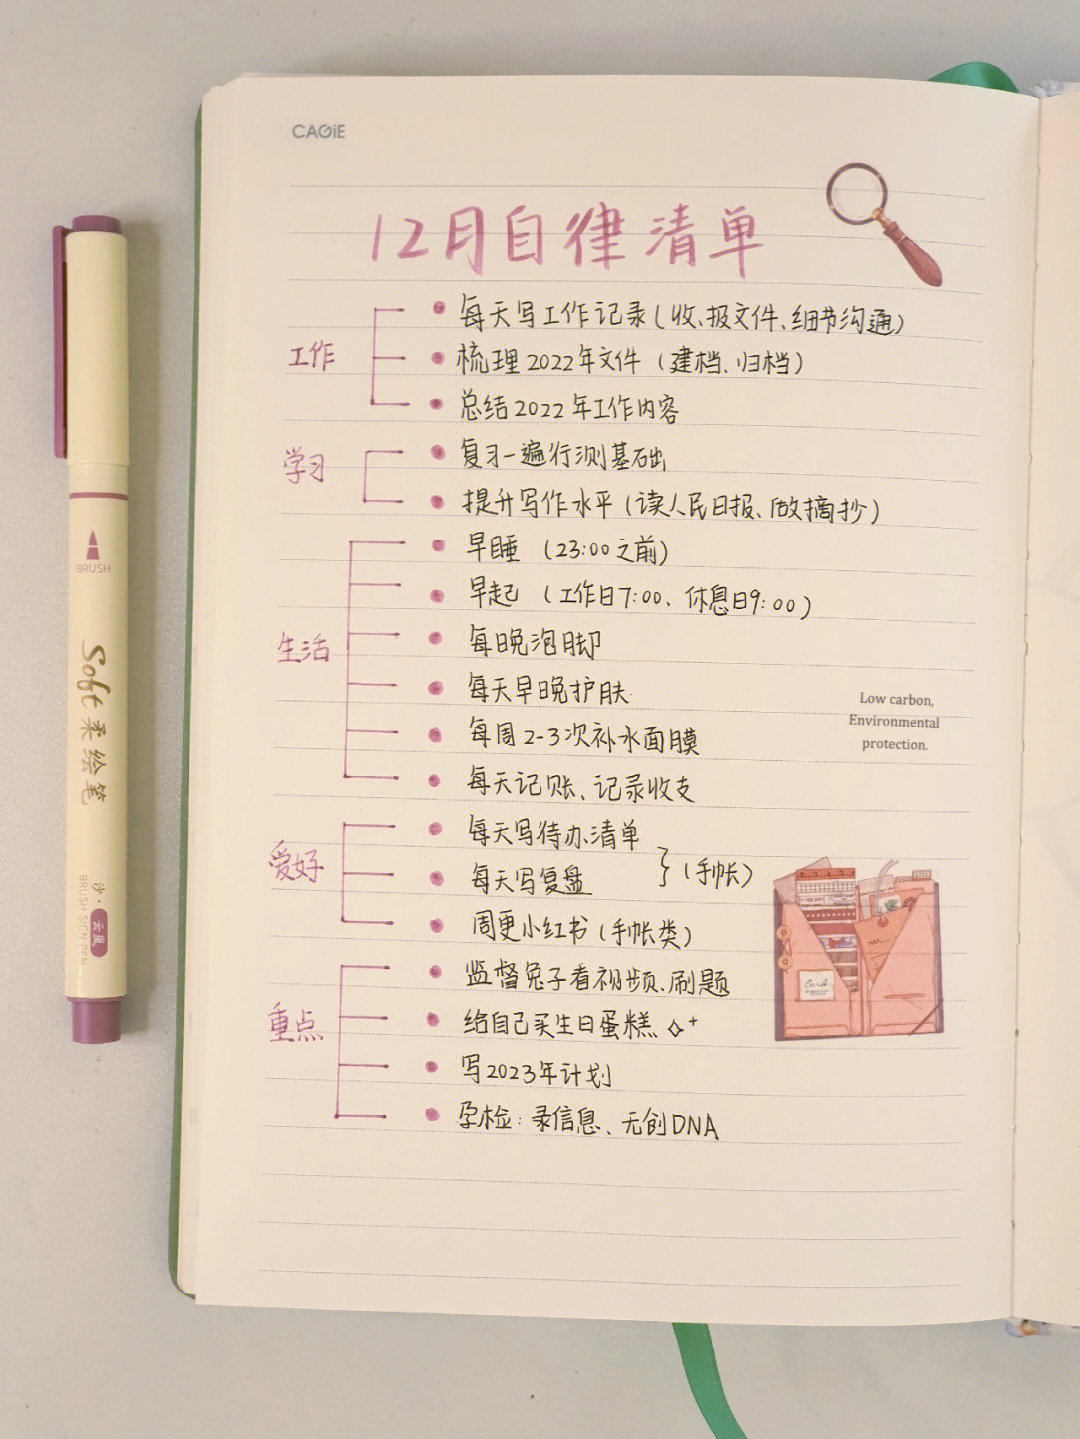 CAGiE
12月自律清单
工作
每天写工作记录(收、报文件、细节沟通)
梳理2022年文件(建档、归档)
总结2022年工作内容
学习
复习一遍行测基础
提升写作水平(读人民日报、做摘抄)
生活
早睡(23:00之前)
早起(工作日7:00、休息日9:00)
每晚泡脚
每天早晚护肤
每周2-3次补水面膜
每天记账、记录收支
Low carbon,
Environmental
protection.
爱好
每天写待办清单
每天写复盘
(手帐)
周更小红书(手帐类)
重点
监督兔子看视频、刷题
给自己买生日蛋糕
写2023年计划
孕检:录信息、无创DNA
Card
BRUSH
Soft柔绘笔
沙·云岚
BRUSH SIGN PEN